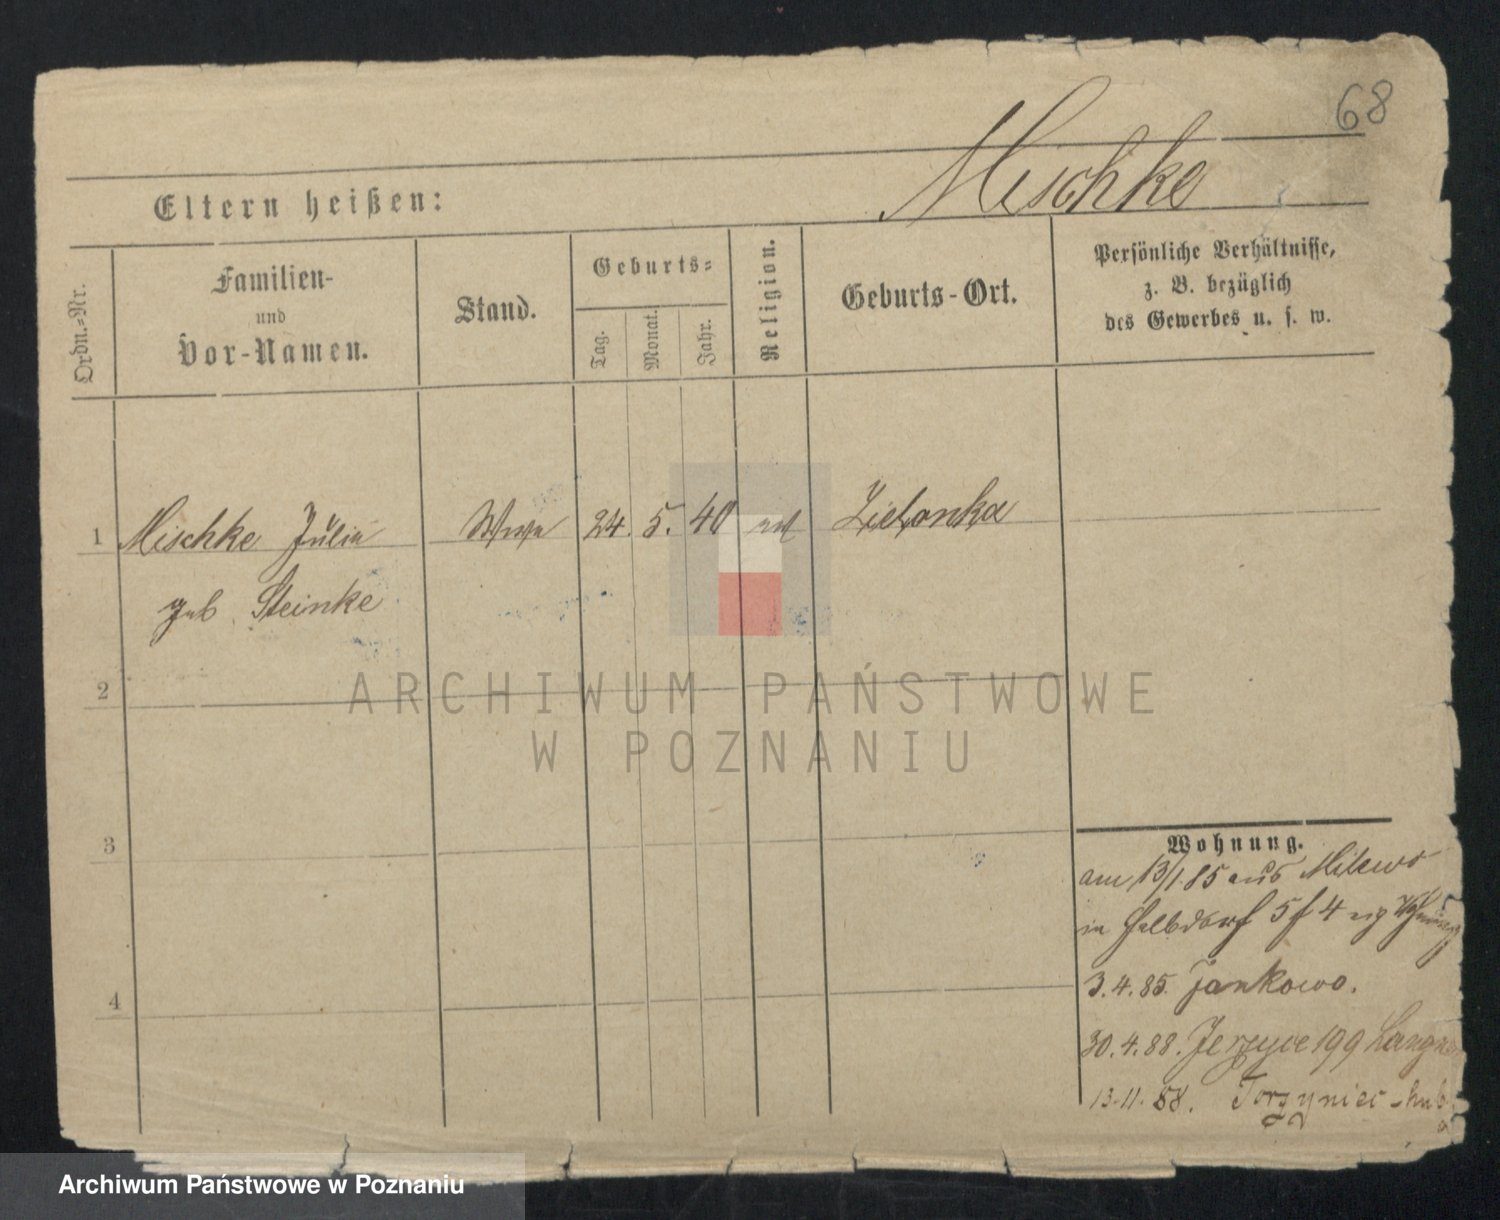 68
Mischke
Eltern heißen:
Ordn.=Nr.
Familien-
und
Vor-Namen.
Stand.
Geburts=
Tag.
Monat.
Jahr.
Religion.
Geburts-Ort.
Persönliche Verhältnisse,
z. B. bezüglich
des Gewerbes u. s. w.
1 Mischke Julia Wwe 24. 5. 40 ev Zielonka
geb. Steinke
2
3
4
ARCHIWUM PAŃSTWOWE
W POZNANIU
Wohnung.
am 13/1.85 aus Milewo
in 5 4
3.4.85. Jankowo.
30.4.88. Jerzyce 199
13.11.88.
Archiwum Państwowe w Poznaniu